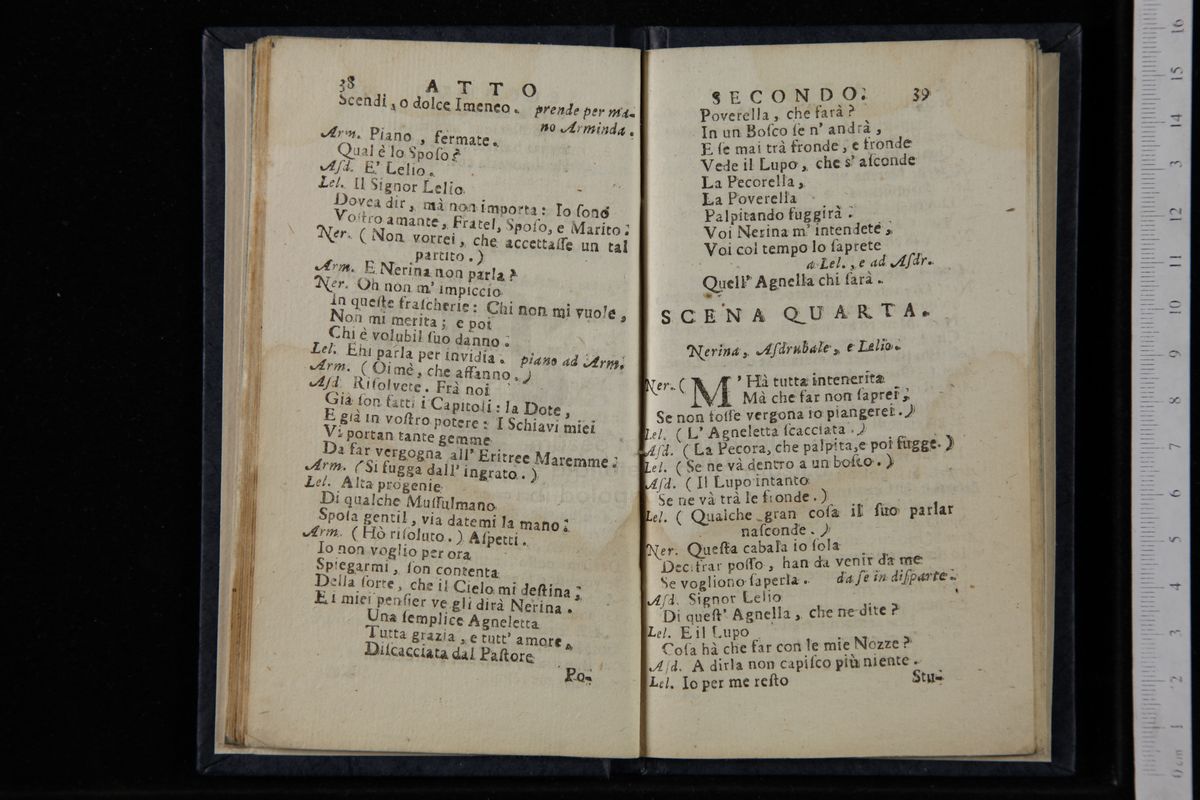 38 ATTO
Scendi, o dolce Imeneo. prende per ma-
no Arminda.
Arm. Piano, fermate.
Qual è lo Sposo?
Aſd. E' Lelio.
Lel. Il Signor Lelio
Dovea dir, mà non importa: Io sono
Vostro amante, Fratel, Sposo, e Marito.
Ner. (Non vorrei, che accettaſſe un tal
partito.)
Arm. E Nerina non parla?
Ner. Oh non m' impiccio
In queſte fraſcherie: Chi non mi vuole,
Non mi merita; e poi
Chi è volubil ſuo danno.
Lel. Ehi parla per invidia. piano ad Arm.
Arm. (Oimè, che affanno.)
Aſd. Riſolvete. Frà noi
Già ſon fatti i Capitoli: la Dote,
E già in voſtro potere: I Schiavi miei
Vi portan tante gemme
Da far vergogna all' Eritree Maremme.
Arm. (Si fugga dall' ingrato.)
Lel. Alta progenie
Di qualche Muſſulmano
Spoſa gentil, via datemi la mano.
Arm. (Hò riſoluto.) Aſpetti.
Io non voglio per ora
Spiegarmi, ſon contenta
Della ſorte, che il Cielo mi deſtina;
E i miei penſier ve gli dirà Nerina.
Una ſemplice Agneletta
Tutta grazia, e tutt' amore,
Diſcacciata dal Paſtore
Po-
SECONDO. 39
Poverella, che farà?
In un Boſco ſe n' andrà,
E ſe mai trà fronde, e fronde
Vede il Lupo, che s' aſconde
La Pecorella,
La Poverella
Palpitando fuggirà.
Voi Nerina m' intendete,
Voi col tempo lo ſaprete
a Lel., e ad Aſdr.
Quell' Agnella chi ſarà.
SCENA QUARTA.
Nerina, Aſdrubale, e Lelio.
Ner. (M' Hà tutta intenerita
Mà che far non ſaprei,
Se non foſſe vergona io piangerei.)
Lel. (L' Agneletta ſcacciata.)
Aſd. (La Pecora, che palpita, e poi fugge.)
Lel. (Se ne và dentro a un boſco.)
Aſd. (Il Lupo intanto
Se ne và trà le fronde.)
Lel. (Qualche gran coſa il ſuo parlar
naſconde.)
Ner. Queſta cabala io ſola
Decifrar poſſo, han da venir da me
Se vogliono ſaperla. da ſe in diſparte.
Aſd. Signor Lelio
Di queſt' Agnella, che ne dite?
Lel. E il Lupo
Coſa hà che far con le mie Nozze?
Aſd. A dirla non capiſco più niente.
Lel. Io per me reſto
Stu-
16
15
14
13
12
11
10
9
8
7
6
5
4
3
2
1
0 cm